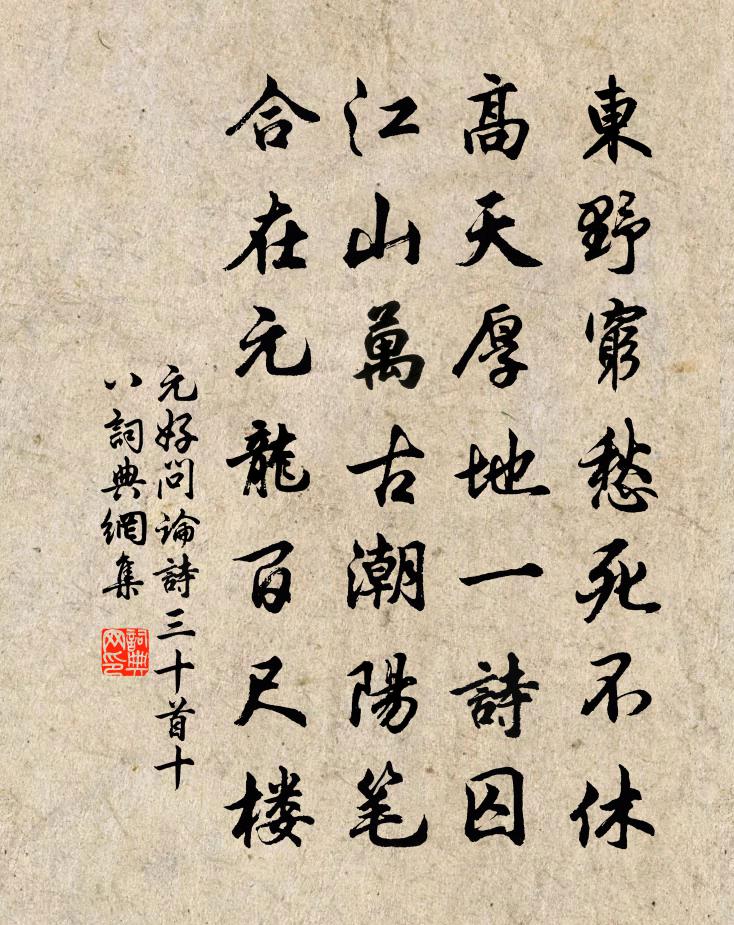 東野窮愁死不休
高天厚地一詩囚
江山萬古潮陽笔
合在元龍百尺楼
元好问論詩三十首十
八詞典網集
詞典
网印